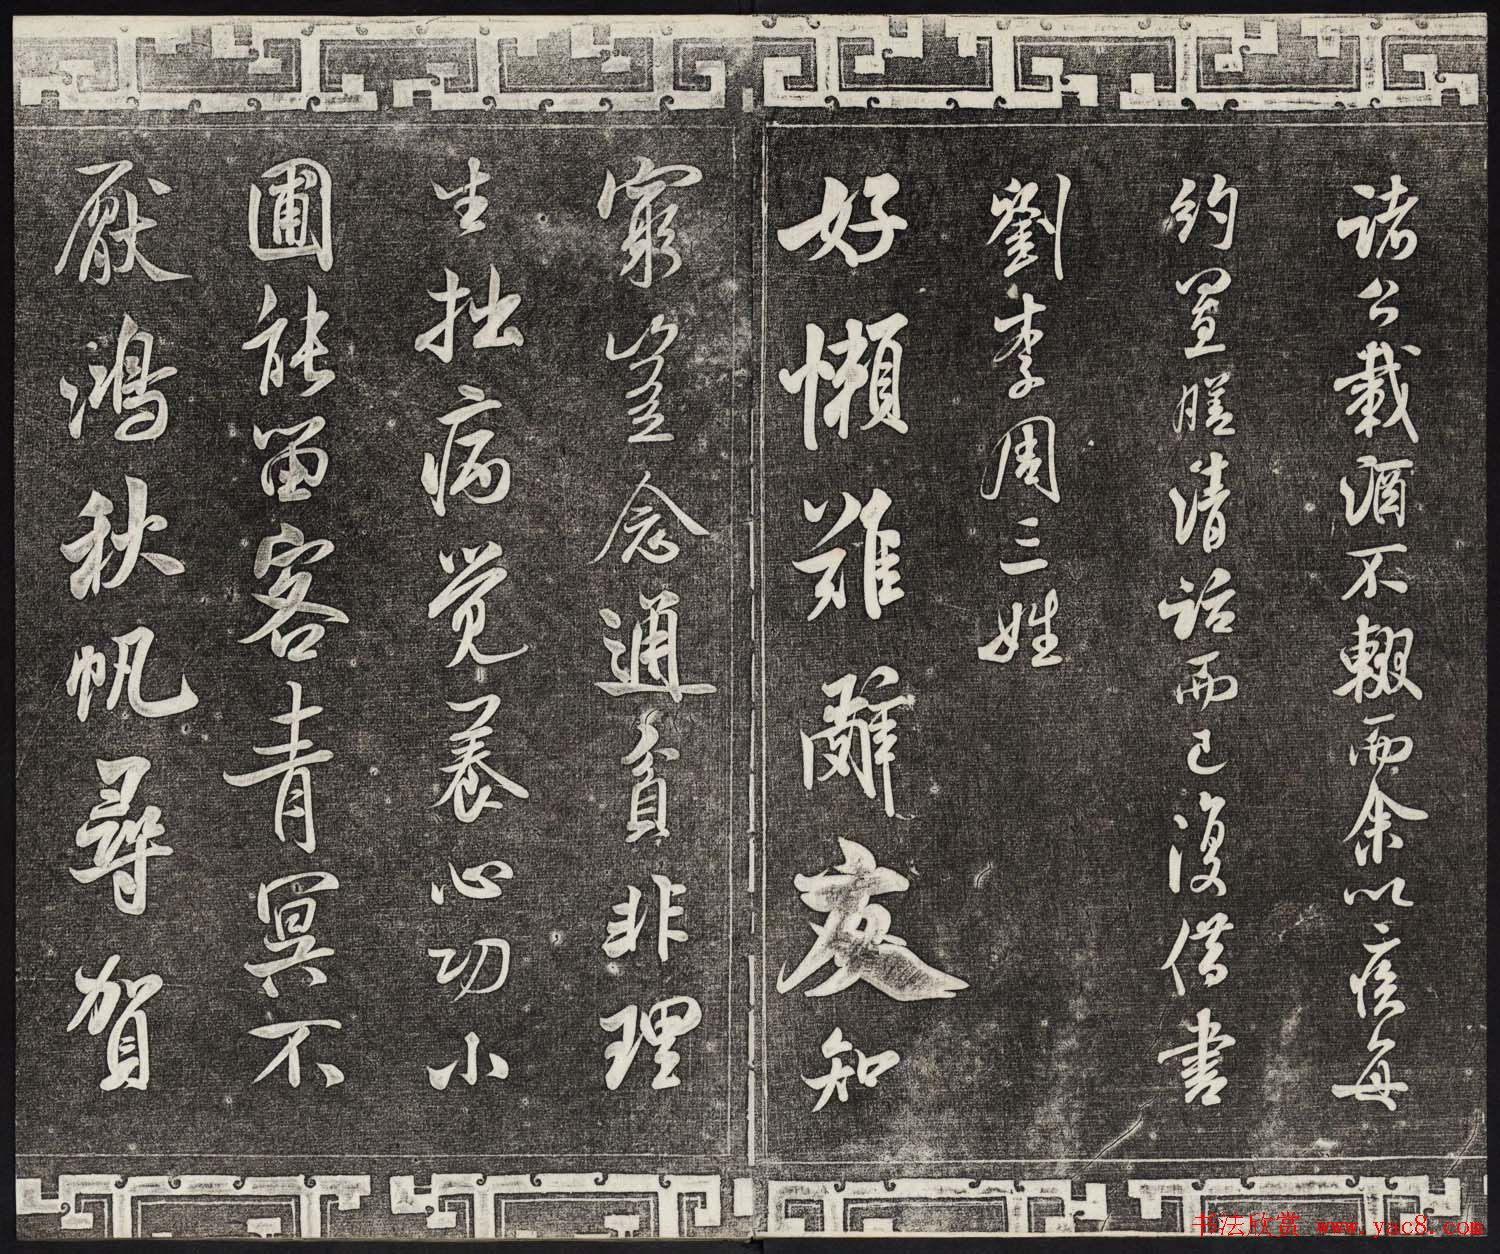 諸公載酒不輟而余以疾每
約置膳清話而已復借書
劉李周三姓
好懶難辭友知
窮豈念通貧非理
生拙病覺養心功小
圃能留客青冥不
厭鴻秋帆尋賀
书法欣赏 www.yac8.com